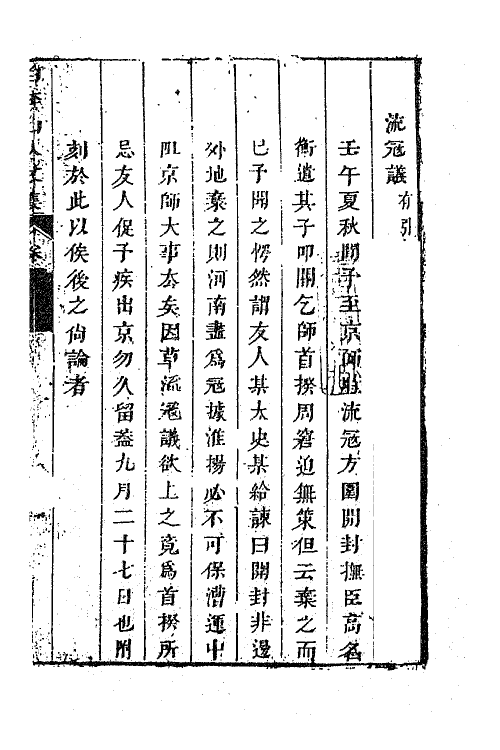 流寇議有引
壬午夏秋間予至京師時流寇方圍開封撫臣高名
衡遣其子叩關乞師首揆周窘迫無策但云棄之而
已予聞之愕然謂友人某太史某給諫曰開封非邊
外地棄之則河南盡為寇據淮揚必不可保漕運中
阻京師大事去矣因草流寇議欲上之竟為首揆所
忌友人促予疾出京勿久留葢九月二十七日也附
刻於此以俟後之尙論者